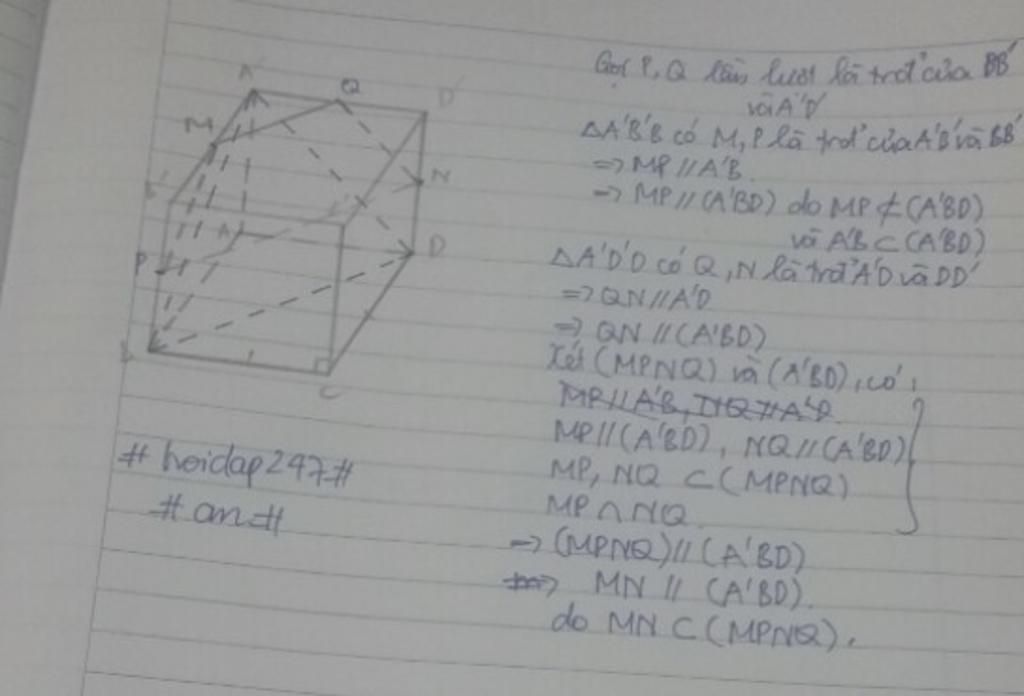 A'
Q
D'
M
N
A
D
P
C
Gọi P, Q lần lượt là trđ' của BB'
và A'D'
ΔA'B'B có M, P là trđ' của A'B' và BB'
=> MP // A'B
=> MP // (A'BD) do MP ⊄ (A'BD)
và A'B ⊂ (A'BD)
ΔA'D'D có Q, N là trđ' A'D' và DD'
=> QN // A'D
=> QN // (A'BD)
Xét (MPNQ) và (A'BD), có:
MP // A'B, NQ // A'D
MP // (A'BD), NQ // (A'BD)
MP, NQ ⊂ (MPNQ)
MP ∩ NQ
=> (MPNQ) // (A'BD)
=> MN // (A'BD).
do MN ⊂ (MPNQ).
# hoidap247#
# an#